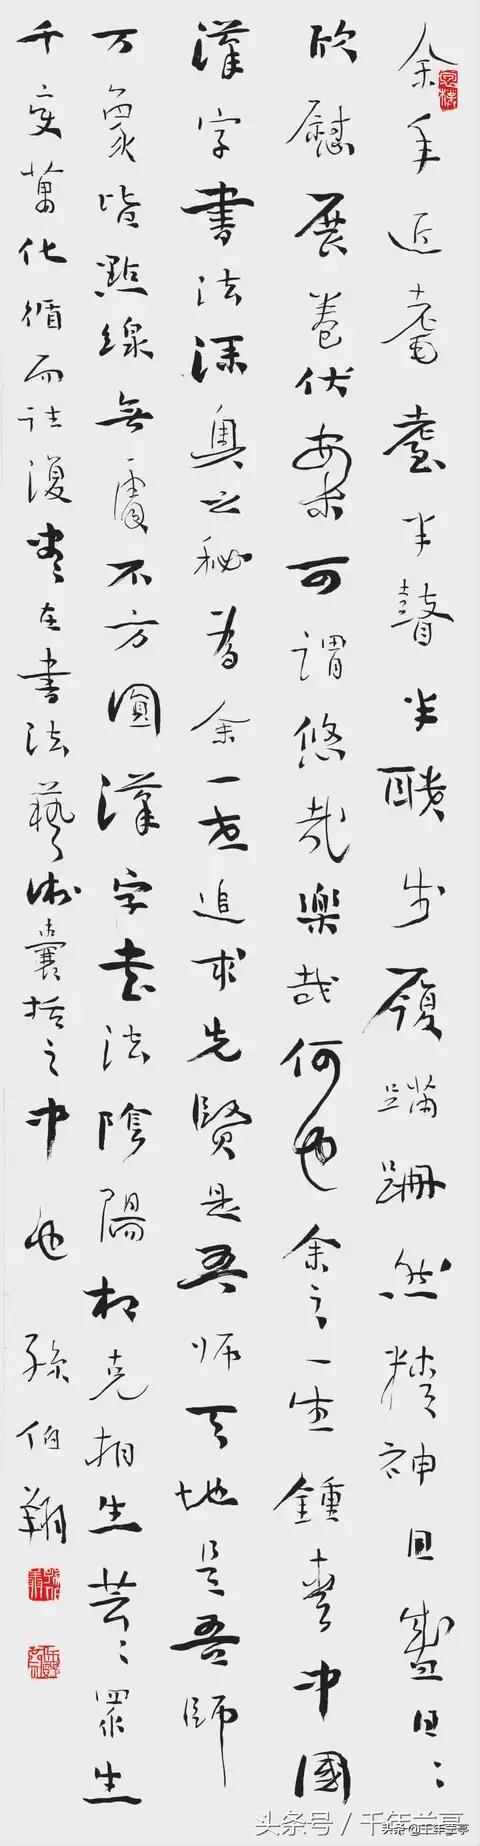 余年近耄耋半瞽半聵步履蹣跚然精神日盛日〻
欣慰展卷伏案可謂悠哉樂哉何也余之一生鍾愛中國
漢字書法深奧之秘為余一世追求先賢是吾師天地是吾師
万象皆點線無處不方圓漢字書法陰陽相克相生芸〻眾生
千变萬化循而往復盡在書法藝術囊括之中也 孫伯翔
头条号 / 千年兰亭
头条 @千年兰亭